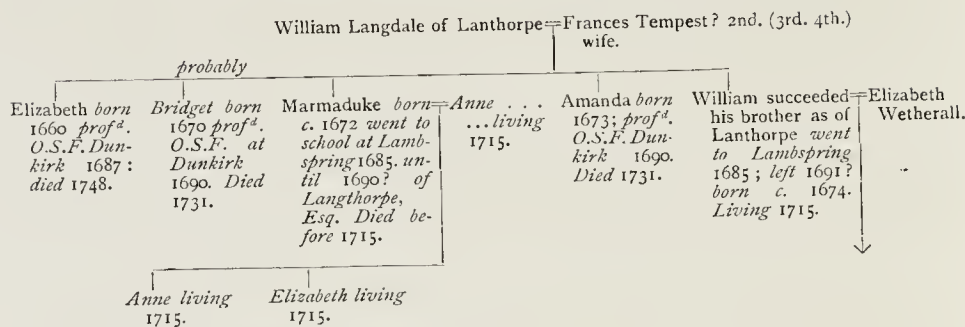 William Langdale of Lanthorpe=Frances Tempest? 2nd. (3rd. 4th.)
wife.
probably
Elizabeth born
1660 profd.
O.S.F. Dun-
kirk 1687 :
died 1748.
Bridget born
1670 profd.
O.S.F. at
Dunkirk
1690. Died
1731.
Marmaduke born=Anne ...
c. 1672 went to
school at Lamb-
spring 1685. un-
til 1690? of
Langthorpe,
Esq. Died be-
fore 1715.
...living
1715.
Amanda born
1673; profd.
O.S.F. Dun-
kirk 1690.
Died 1731.
William succeeded=Elizabeth
his brother as of
Lanthorpe went
to Lambspring
1685 ; left 1691?
born c. 1674.
Living 1715.
Wetherall.
Anne living
1715.
Elizabeth living
1715.